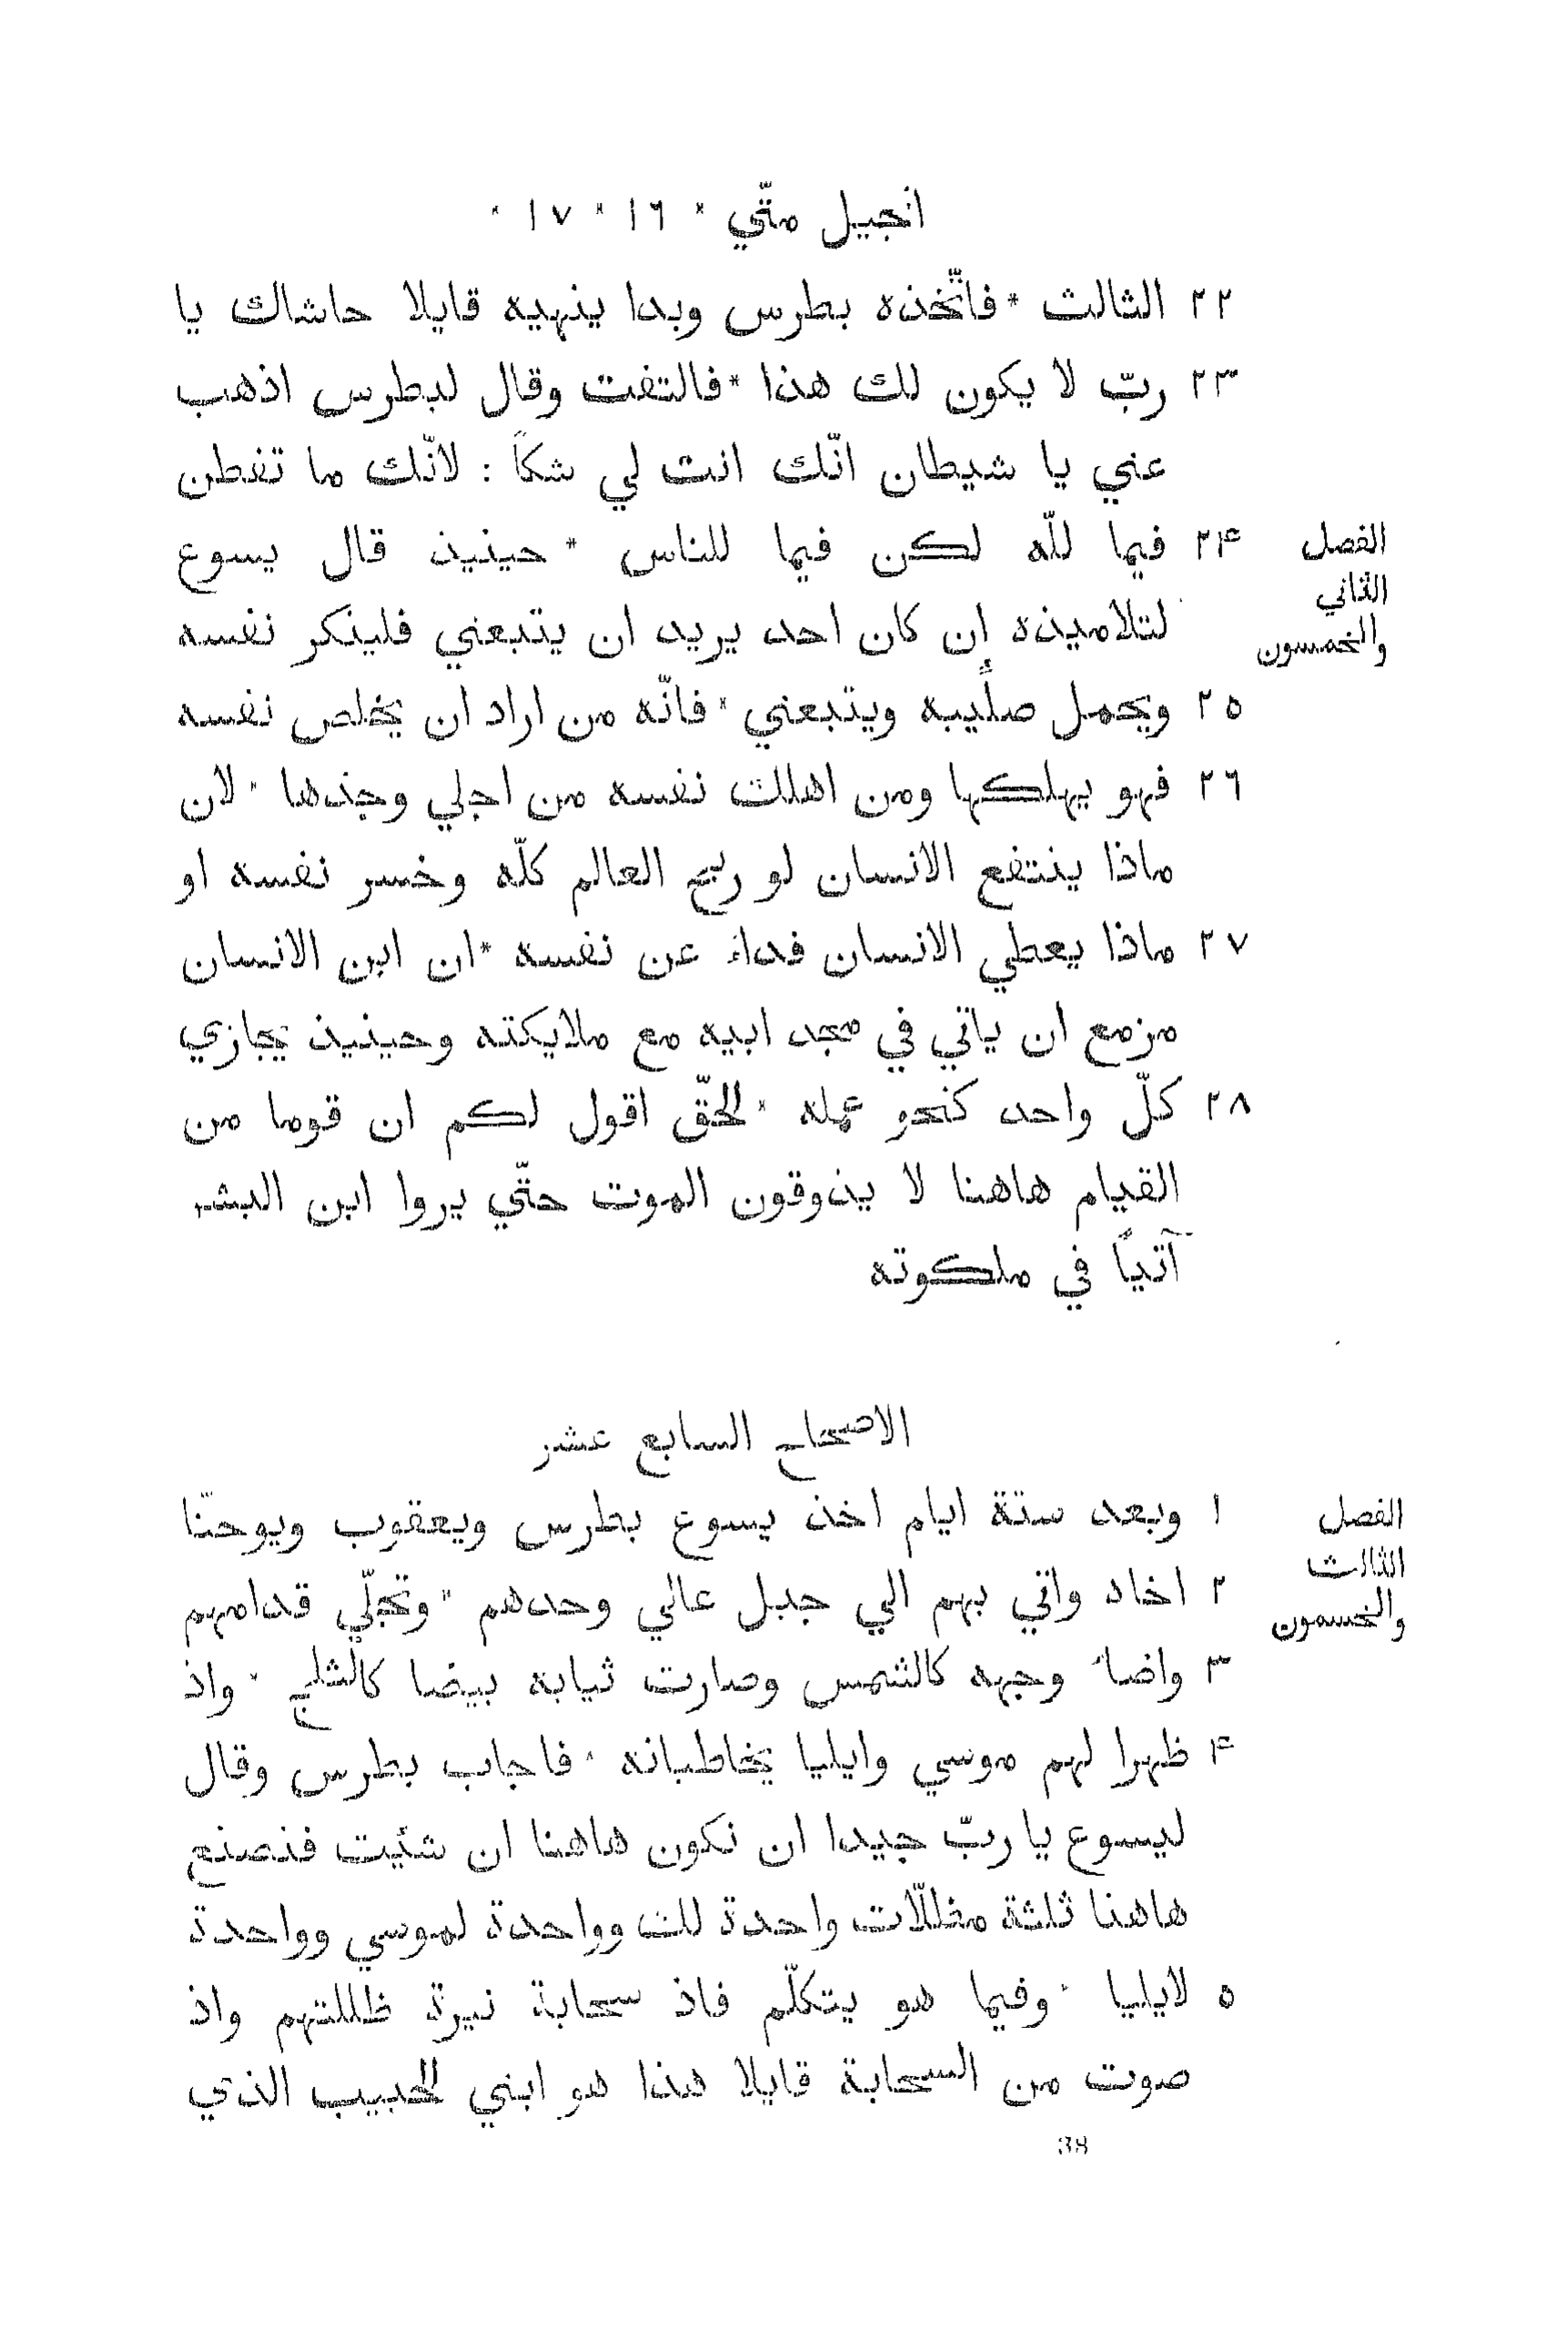 انجيل متّي * ١٦ * ١٧ *
٢٢ الثالث * فاتّخذه بطرس وبدا ينهيه قايلا حاشاك يا
٢٣ ربّ لا يكون لك هذا * فالتفت وقال لبطرس اذهب
عني يا شيطان انّك انت لي شكاً : لانّك ما تفطن
٢۴ فيما للّه لكن فيما للناس * حينيذ قال يسوع
الفصل
الثاني
والخمسون
لتلاميذه إن كان احد يريد ان يتبعني فلينكر نفسه
٢٥ ويحمل صليبه ويتبعني * فانّه من اراد ان يخلص نفسه
٢٦ فهو يهلكها ومن اهلك نفسه من اجلي وجدها * لان
ماذا ينتفع الانسان لو ربح العالم كلّه وخسر نفسه او
٢٧ ماذا يعطي الانسان فداء عن نفسه * ان ابن الانسان
مزمع ان ياتي في مجد ابيه مع ملايكته وحينيذ يجازي
٢٨ كلّ واحد كنحو عمله * الحقّ اقول لكم ان قوما من
القيام هاهنا لا يذوقون الموت حتّي يروا ابن البشر
آتياً في ملكوته
الاصحاح السابع عشر
١ وبعد ستة ايام اخذ يسوع بطرس ويعقوب ويوحنّا
الفصل
الثالث
والخسمون
٢ اخاه واتي بهم الي جبل عالي وحدهم * وتجلّي قدامهم
٣ واضا وجهه كالشمس وصارت ثيابه بيضا كالثلج * واذ
۴ ظهرا لهم موسي وايليا يخاطبانه * فاجاب بطرس وقال
ليسوع يا ربّ جيدا ان نكون هاهنا ان شئيت فنصنع
هاهنا ثلثة مظلّلات واحدة لك وواحدة لموسي وواحدة
٥ لايليا * وفيما هو يتكلّم فاذ سحابة نيرة ظللتهم واذ
صوت من السحابة قايلا هذا هو ابني الحبيب الذي
38